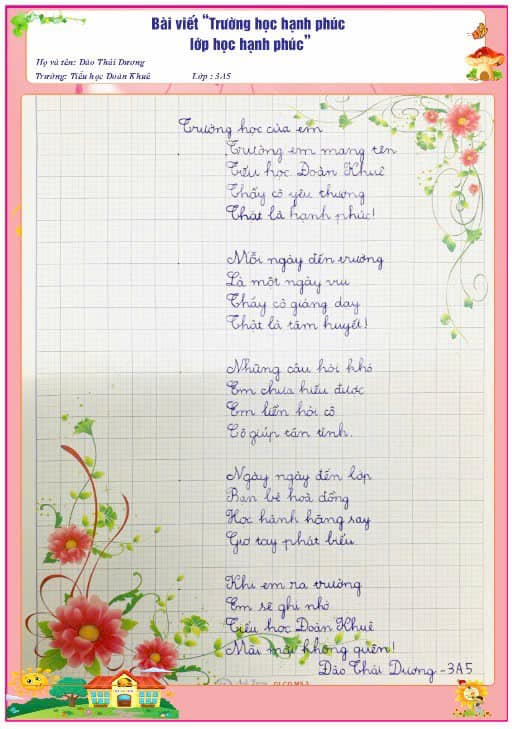 Bài viết “Trường học hạnh phúc
lớp học hạnh phúc”
Họ và tên: Đào Thái Dương
Trường: Tiểu học Doàn Khuê Lớp : 3A5
Trường học của em
Trường em mang tên
Tiểu học Đoàn Khuê
Thầy cô yêu thương
Thật là hạnh phúc!
Mỗi ngày đến trường
Là một ngày vui
Thầy cô giảng dạy
Thật là tâm huyết!
Những câu hỏi khó
Em chưa hiểu được
Em liền hỏi cô
Cô giúp tận tình.
Ngày ngày đến lớp
Bạn bè hoà đồng
Học hành hăng say
Giơ tay phát biểu.
Khi em ra trường
Em sẽ ghi nhớ
Tiểu học Đoàn Khuê
Mãi mãi không quên!
Đào Thái Dương - 3A5